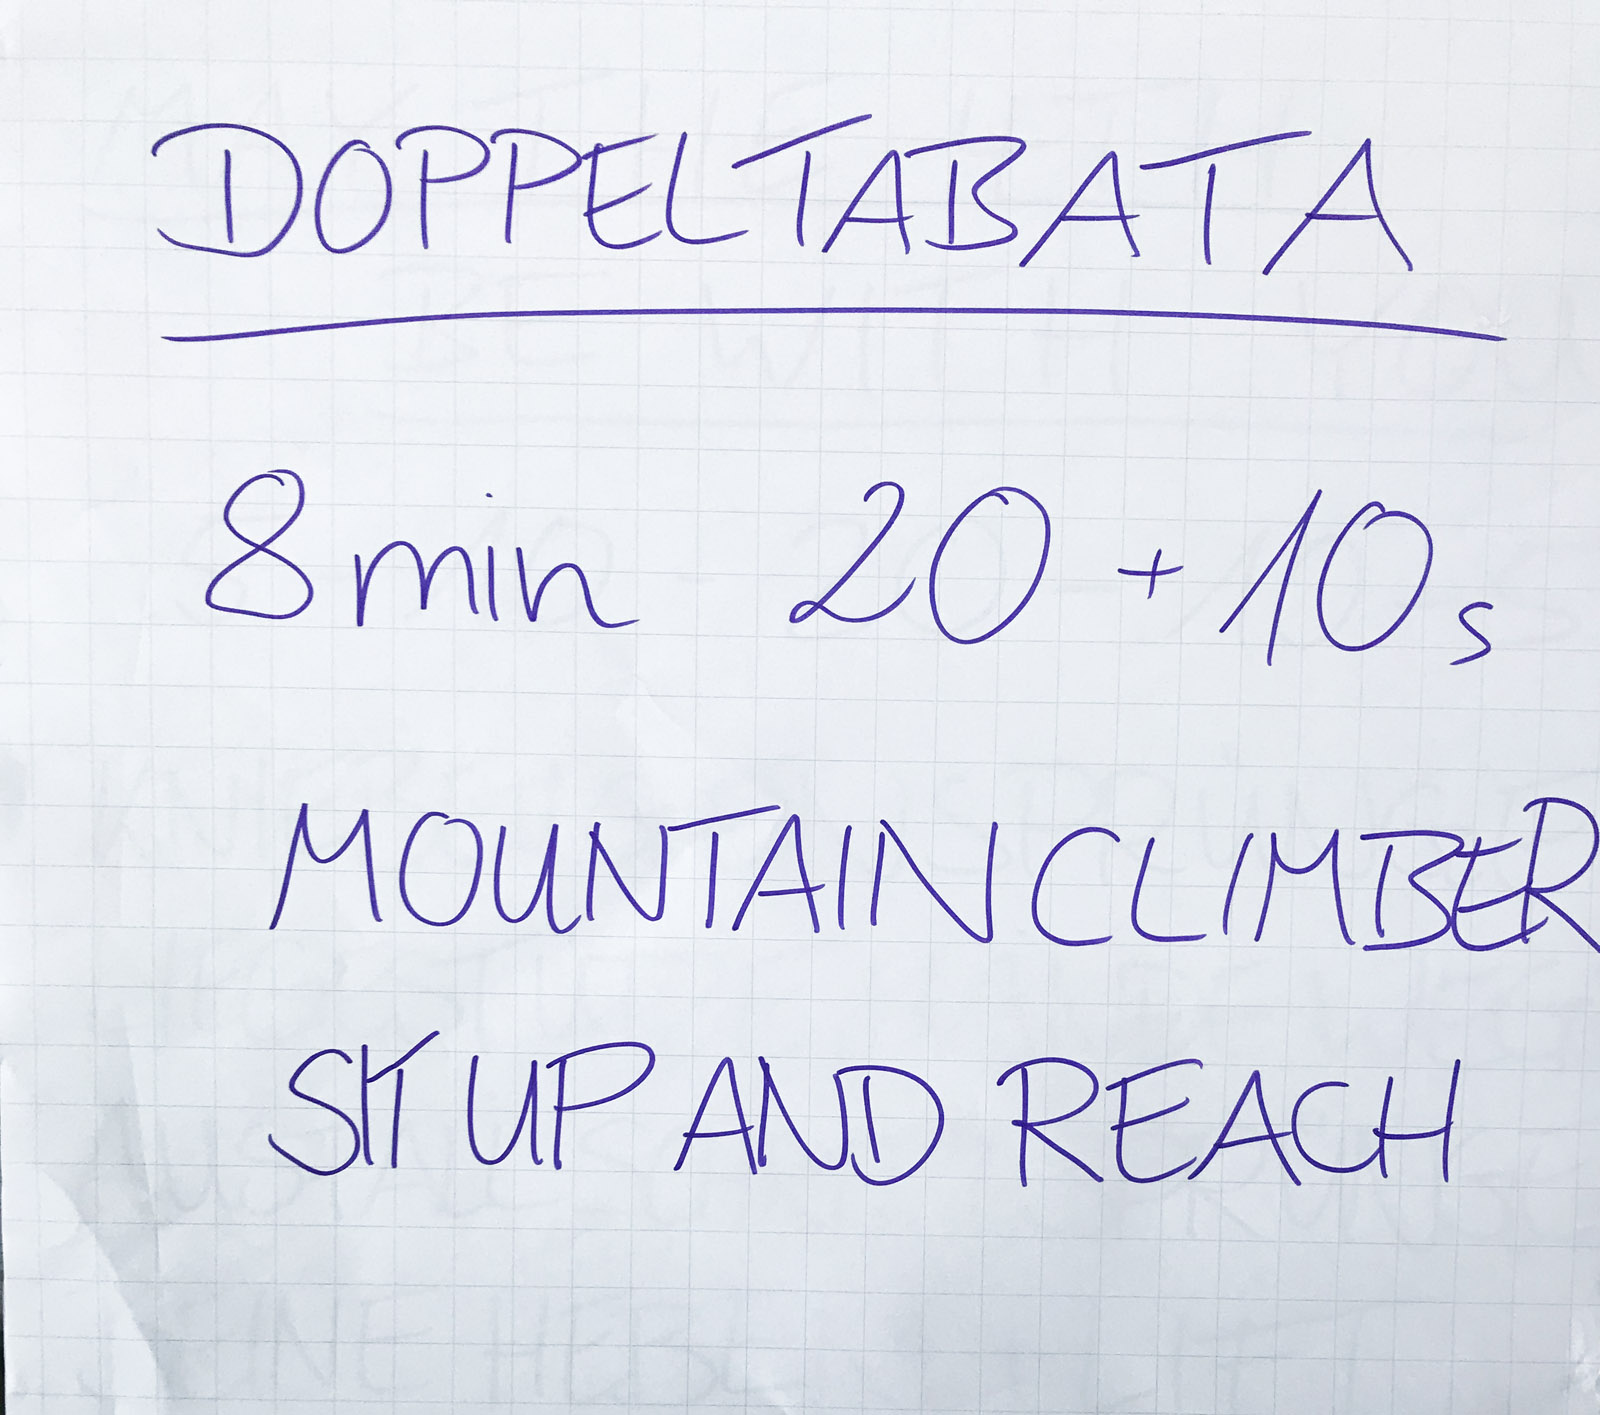 DOPPELTABATA
8 min 20 + 10 s
MOUNTAINCLIMBER
SIT UP AND REACH